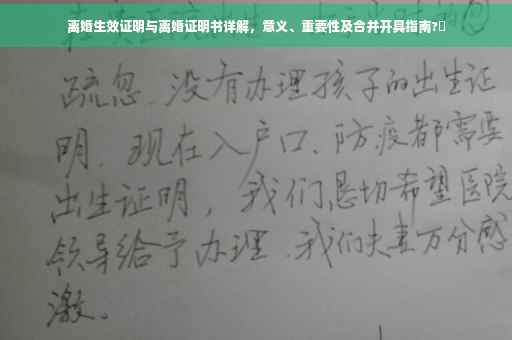 离婚生效证明与离婚证明书详解，意义、重要性及合并开具指南?
疏忽、没有办理孩子的出生证
明．现在入户口、防疫都需要
出生证明，我们恳切希望医院
领导给予办理．我们夫妻万分感
激。